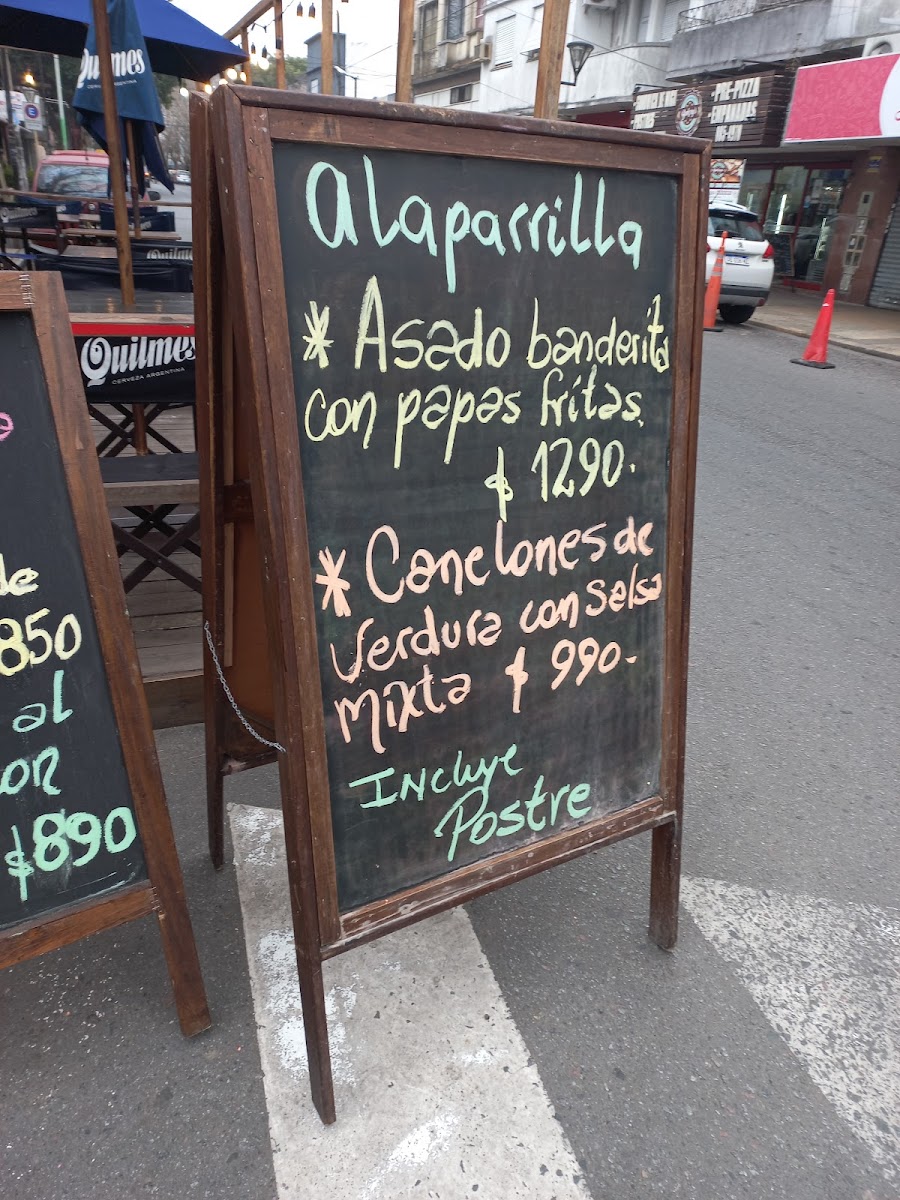 alaparrilla
* Asado banderita
con papas fritas.
$ 1290.
* Canelones de
Verdura con salsa
mixta $ 990.-
Incluye
Postre
de
850
al
on
$890
Quilmes
CERVEZA ARGENTINA
Quilmes
PRE-PIZZA
EMPANADAS